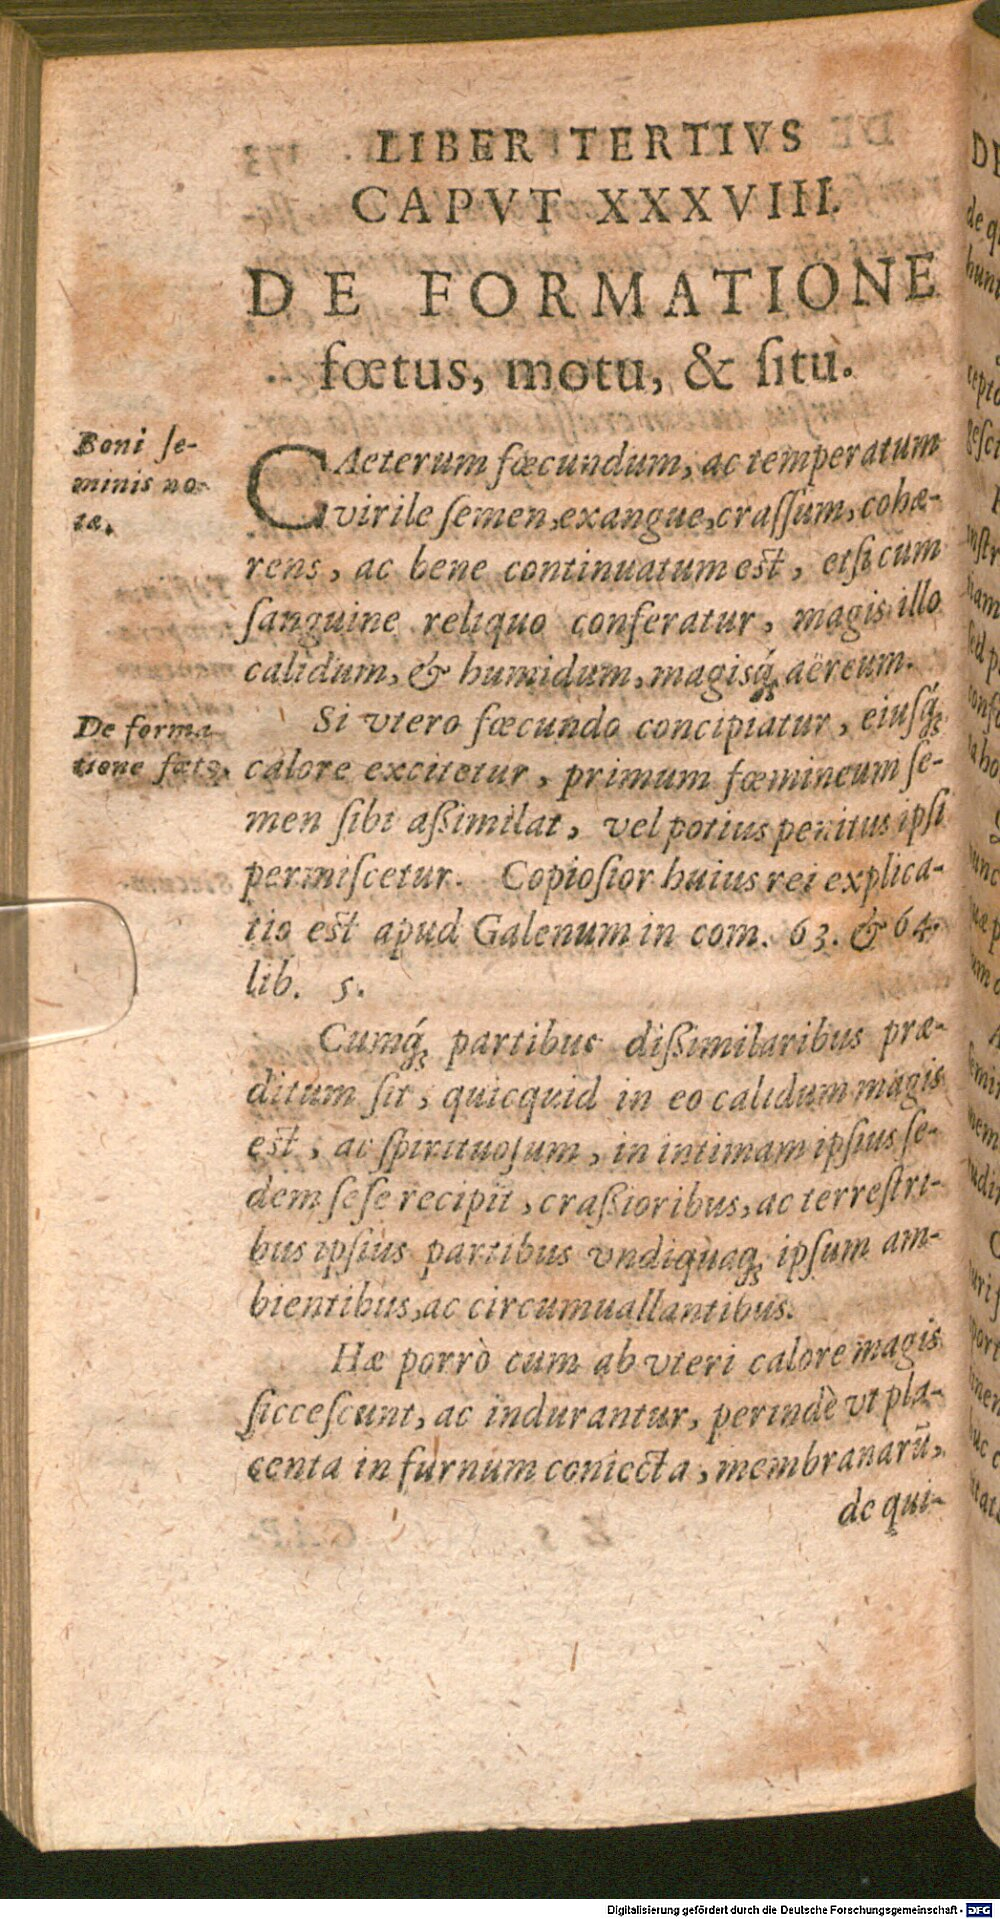 LIBER TERTIVS
CAPVT XXXVIII.
DE FORMATIONE
fœtus, motu, & ſitu.
Boni ſe-
minis no-
tæ.
CAeterum fœcundum, ac temperatum
virile ſemen, exangue, craſſum, cohæ-
rens, ac bene continuatum est, etſi cum
ſanguine reliquo conferatur, magis illo
calidum, & humidum, magisq́; aëreum.
De forma-
tione fœtº.
Si vtero fœcundo concipiatur, eiuſq́;
calore excitetur, primum fœmineum ſe-
men ſibi aßimilat, vel potius penitus ipſi
permiſcetur. Copioſior huius rei explica-
tio est apud Galenum in com. 63. & 64.
lib. 5.
Cumq́; partibus dißimilaribus præ-
ditum ſit, quicquid in eo calidum magis
est, ac ſpirituoſum, in intimam ipſius ſe-
dem ſeſe recipit, craßioribus, ac terreſtri-
bus ipſius partibus vndiquaq; ipſum am-
bientibus, ac circumuallantibus.
Hæ porrò cum ab vteri calore magis
ſicceſcunt, ac indurantur, perindè vt pla-
centa in furnum coniecta, membranarū,
de qui-
Digitalisierung gefördert durch die Deutsche Forschungsgemeinschaft - DFG